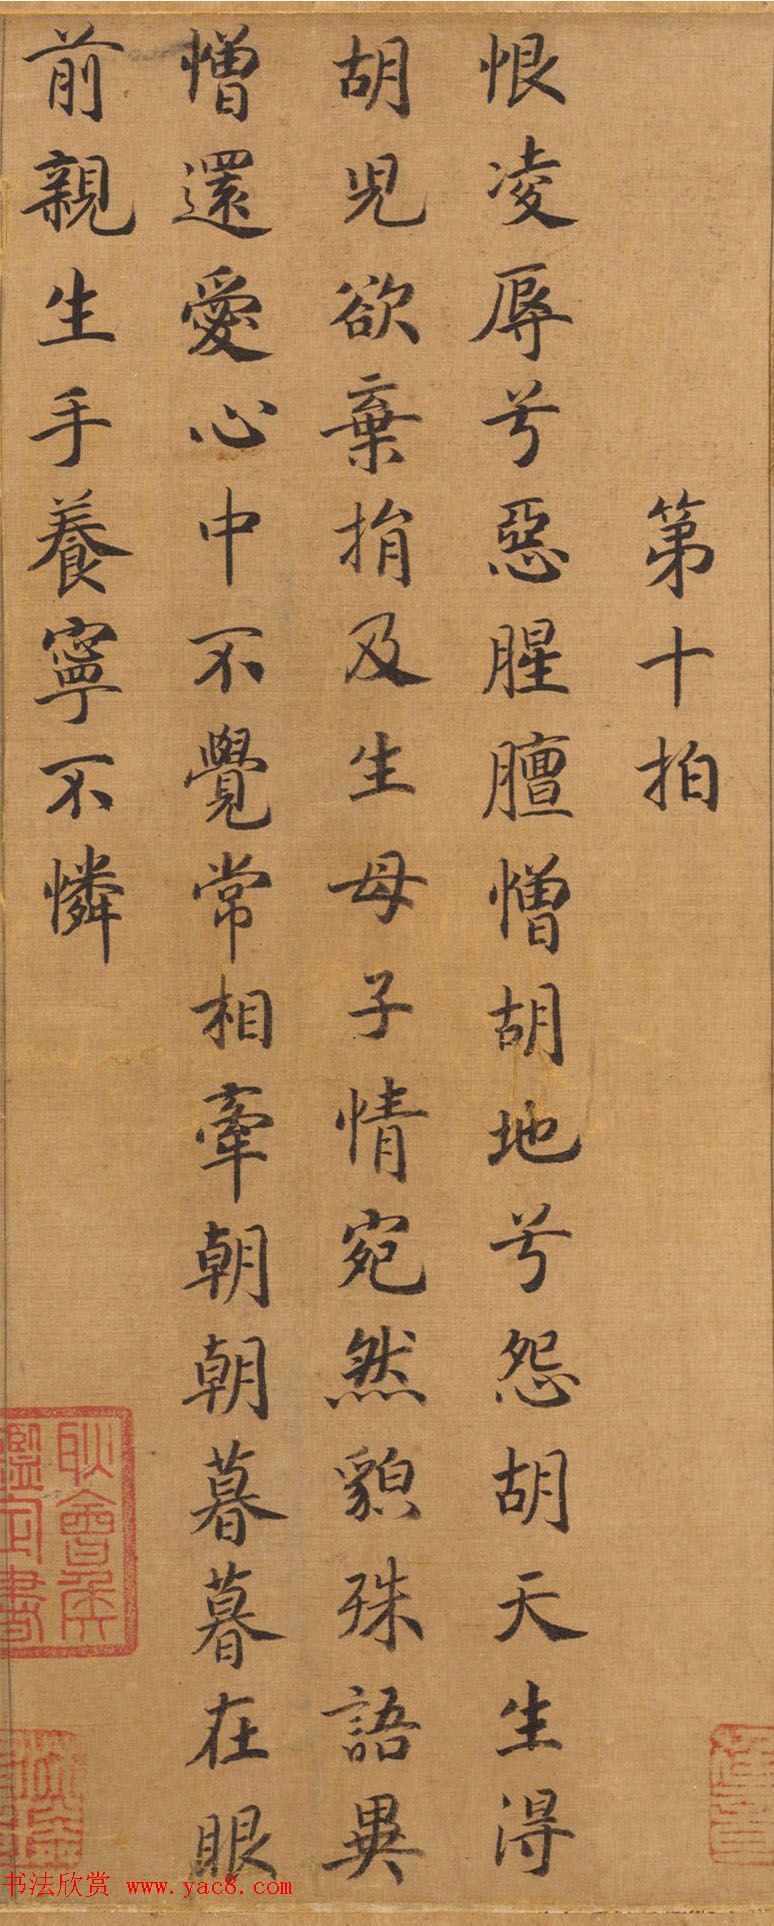 第十拍
恨凌辱兮惡腥膻憎胡地兮怨胡天生得
胡兒欲棄捐及生母子情宛然貌殊語異
憎還愛心中不覺常相牽朝朝暮暮在眼
前親生手養寧不憐
书法欣赏 www.yac8.com